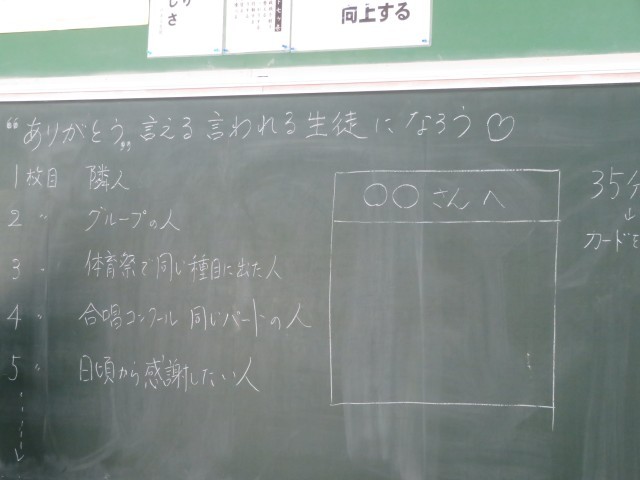 しさ
向上する
"ありがとう" 言える言われる生徒になろう♡
1枚目 隣人
2 〃 グループの人
3 〃 体育祭で同じ種目に出た人
4 〃 合唱コンクール 同じパートの人
5 〃 日頃から感謝したい人
○○さんへ
35分
↓
カードを